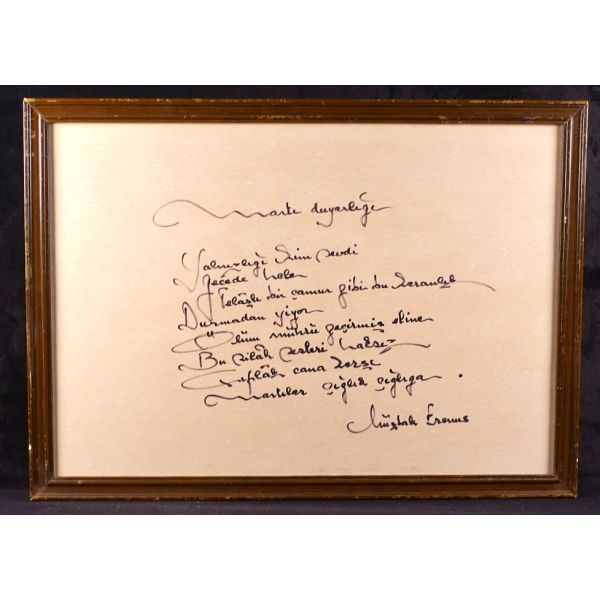 Martı duyarlığı
Yalnızlığı kim sevdi
Gecede hele
Telâşlı bir çamur gibi bu karanlık
Durmadan yiyor
Ölüm mührü geçirmiş eline
Bu silah sesleri haksız
Çıplak cana karşı
Martılar çığlık çığlığa.
Müştak Erenus